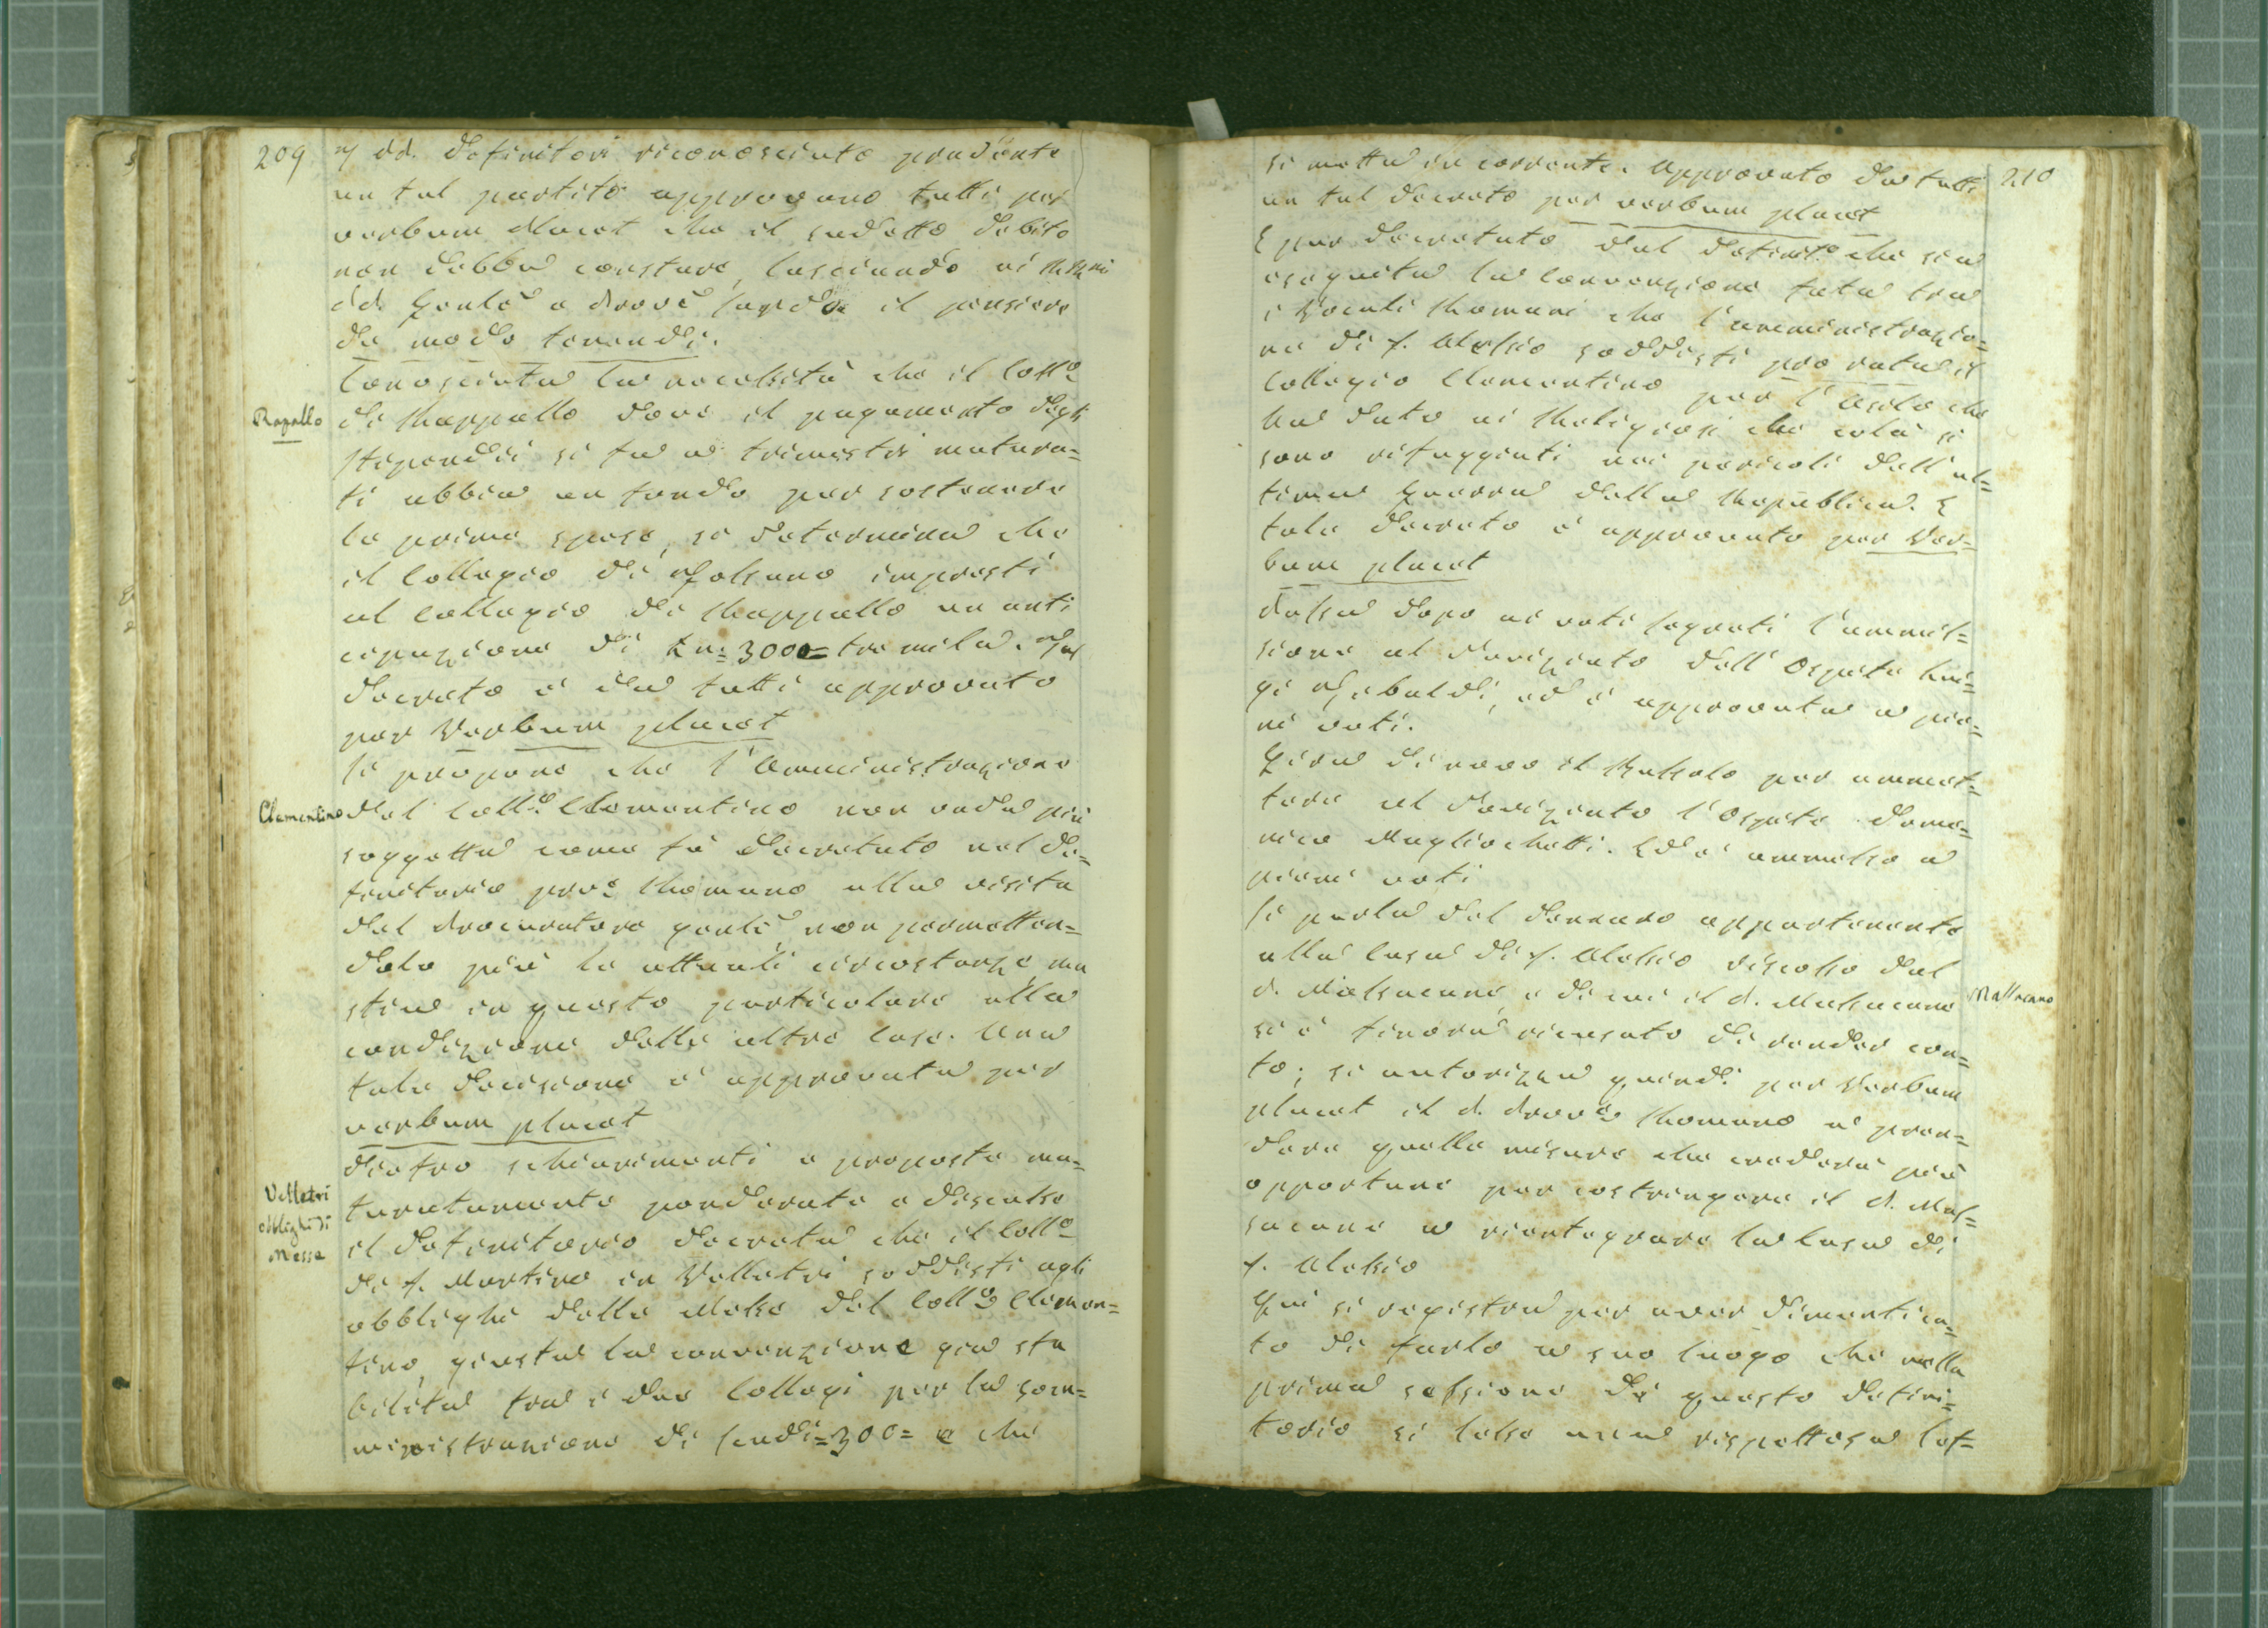 209
dd. Definitori riconosciuto prudente
un tal partito approvano tutti per
verbum Placet che il sudetto debito
non debba constare, lasciando ai RR.mi
dd. Gen.le e Proc.e il pensiero
de modo tenendi.
Conosciuta la necessità che il Coll.o
Rapallo
di Rappallo dove il pagamento degli
stipendii si fa a trimestri matura=
ti abbia un fondo per sostenere
le prime spese, si determina che
il Collegio di Fossano impresti
al Collegio di Rappallo un anti
cipazione di Ln= 3000= tre mila. Tal
decreto è da tutti approvato
per Verbum placet
Si propone che l'Amministrazione
Clementino
del Coll.o Clementino non vada più
soggetta come fù decretato nel De=
finitorio prov.e Romano alla visita
del Procuratore gen.le non permetten=
dolo più le attuali circostanze ma
stia in questo particolare alla
condizione delle altre Case. Una
tale decisione è approvata per
verbum placet
Dietro schiarimenti e proposte ma=
Velletri
obblighi di
Messe
turatamente ponderate e discusse
il Definitorio decreta che il Coll.o
di S. Martino in Velletri soddisfi agli
obblighi delle Messe del Coll.o Clemen=
tino, giusta la convenzione già sta
bilita tra i due Collegi per la som=
ministrazione di scudi=300= e che
210
si metta in corrente. Approvato da tutti
un tal decreto per verbum placet
È pur decretato dal Definit.o che sia
eseguita la Convenzione fatta tra
i Vocali Romani che l'amministrazio=
ne di S. Alessio soddisfi pro rata il
Collegio Clementino per l'Asilo che
ha dato ai Religiosi che colà si
sono rifuggiati nei pericoli dell'ul=
tima guerra della Republica. E
tale decreto è approvato per Ver=
bum placet
Passa dopo ai voti segreti l'ammis=
sione al Noviziato dell'Ospite Lui=
gi Gebaldi, ed è approvata a pie=
ni voti.
Gira di novo il Bussolo per ammet=
tere al Noviziato l'Ospite Dome=
nico Magliochetti. Ed è ammesso a
pieni voti
Si parla del denaro appartenente
alla Casa di S. Alessio riscosso dal
Massucano
P. Massucane, e di cui il P. Massucane
si è finora ricusato di render con=
to; si autorizza quindi per Verbum
placet il P. Prov.le Romano a pren=
dere quelle misure che crederà più
opportune per costringere il P. Mas=
sucane a rientegrare la Casa di
S. Alessio
Qui si registra per aver dimentica=
to di farlo a suo luogo che nella
prima sessione di questo Defini=
torio si lesse una rispettosa let=